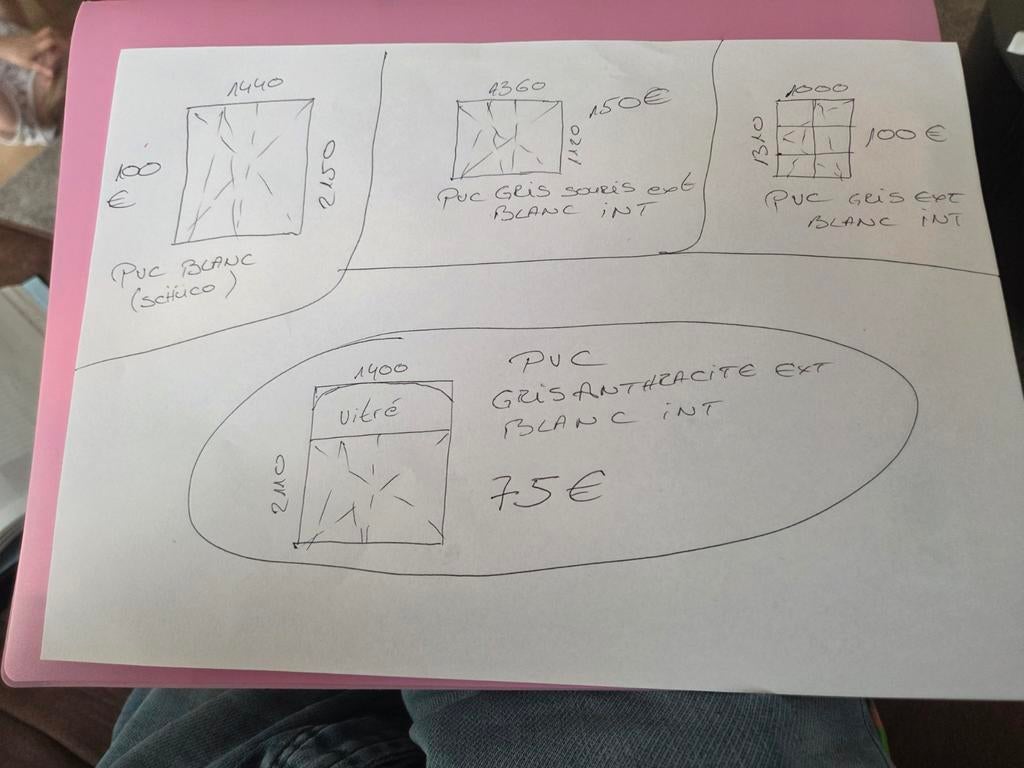 1440
100
€
2150
PVC BLANC
(SCHÜCO)
1360
150€
1120
PVC GRIS SOURIS ext
BLANC iNT
1000
1310
100 €
PVC GRIS EXT
BLANC INT
1400
vitré
2110
PVC
GRIS ANTHRACITE EXT
BLANC iNT
75€